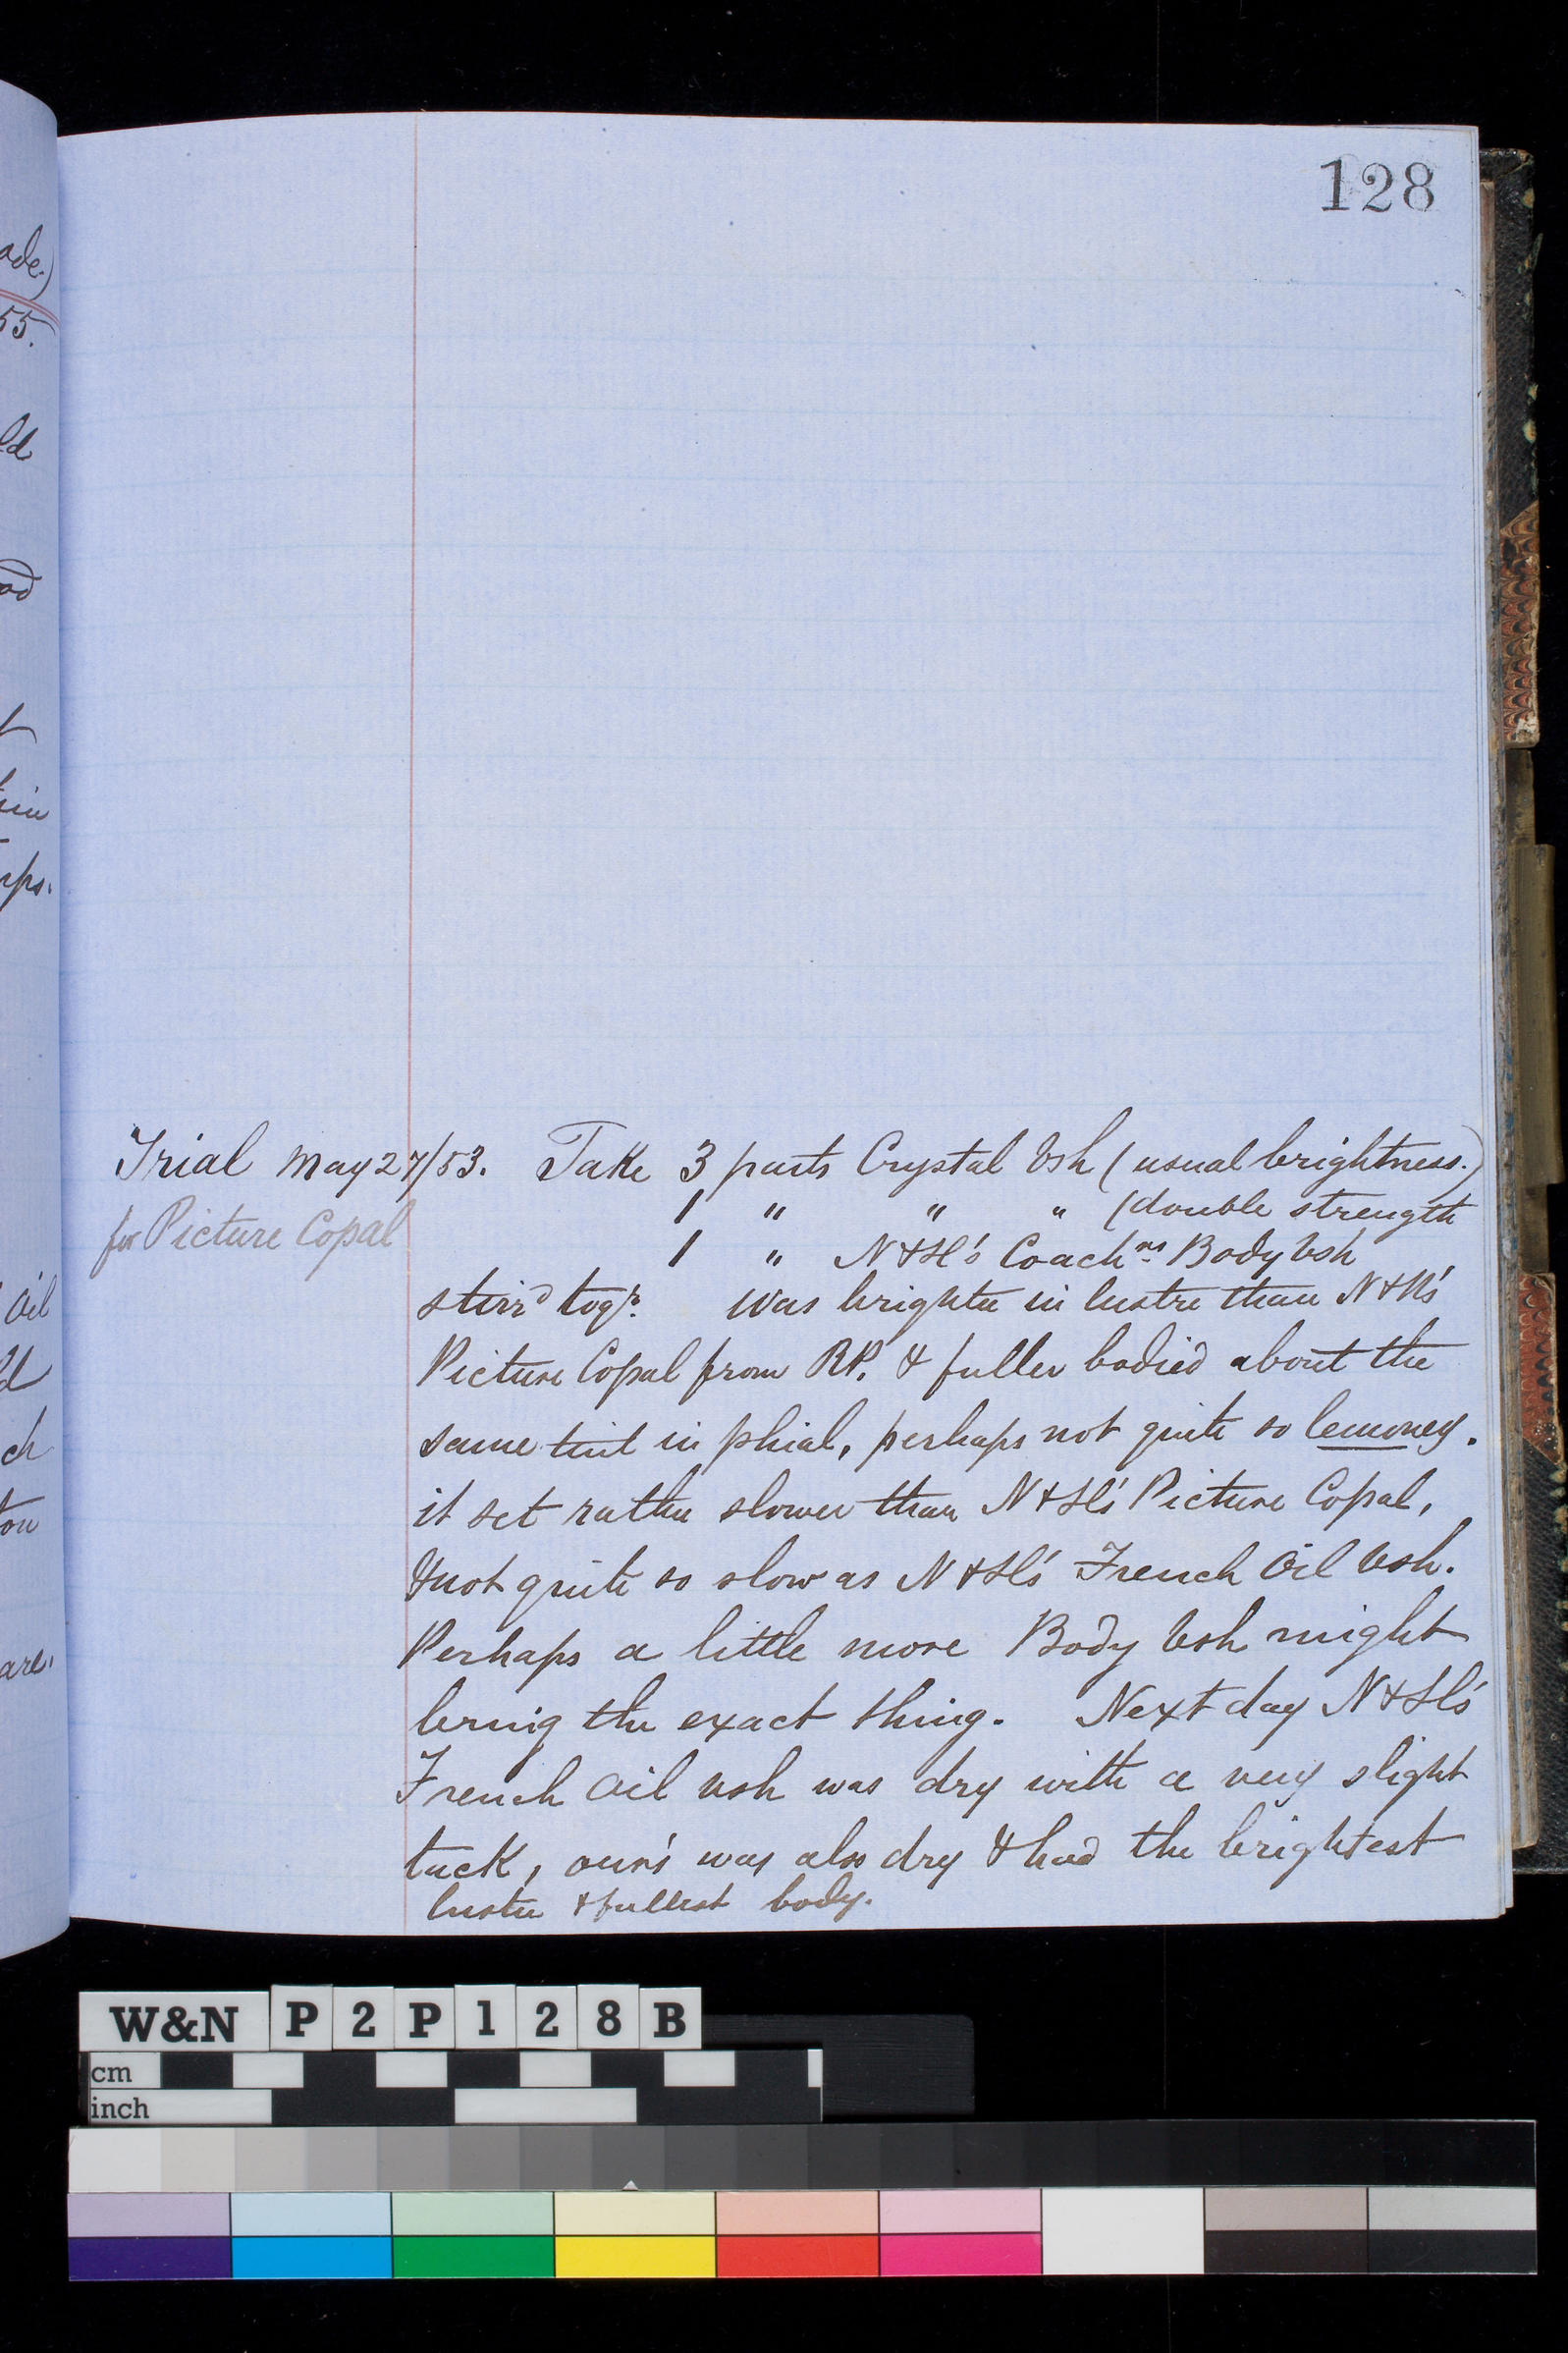 128
Trial May 27/53. Take 3 parts Crystal Vsh (usual brightness.)
for Picture Copal
1 " " " (double strength
1 " N & H's Coachms Body Vsh
stirrd togr. Was brighter in lustre than N & H's
Picture Copal from RP. & fuller bodied about the
same tint in phial, perhaps not quite so lemoney.
it set rather slower than N & H's Picture Copal,
& not quite so slow as N & H's French Oil Vsh.
Perhaps a little more Body Vsh might
bring the exact thing. Next day N & H's
French Oil Vsh was dry with a very slight
tack, our's was also dry & had the brightest
lustre & fullest body.
ade.)
55.
ld
od
rps.
Oil
ch
are.
W&N P2P128B
cm
inch